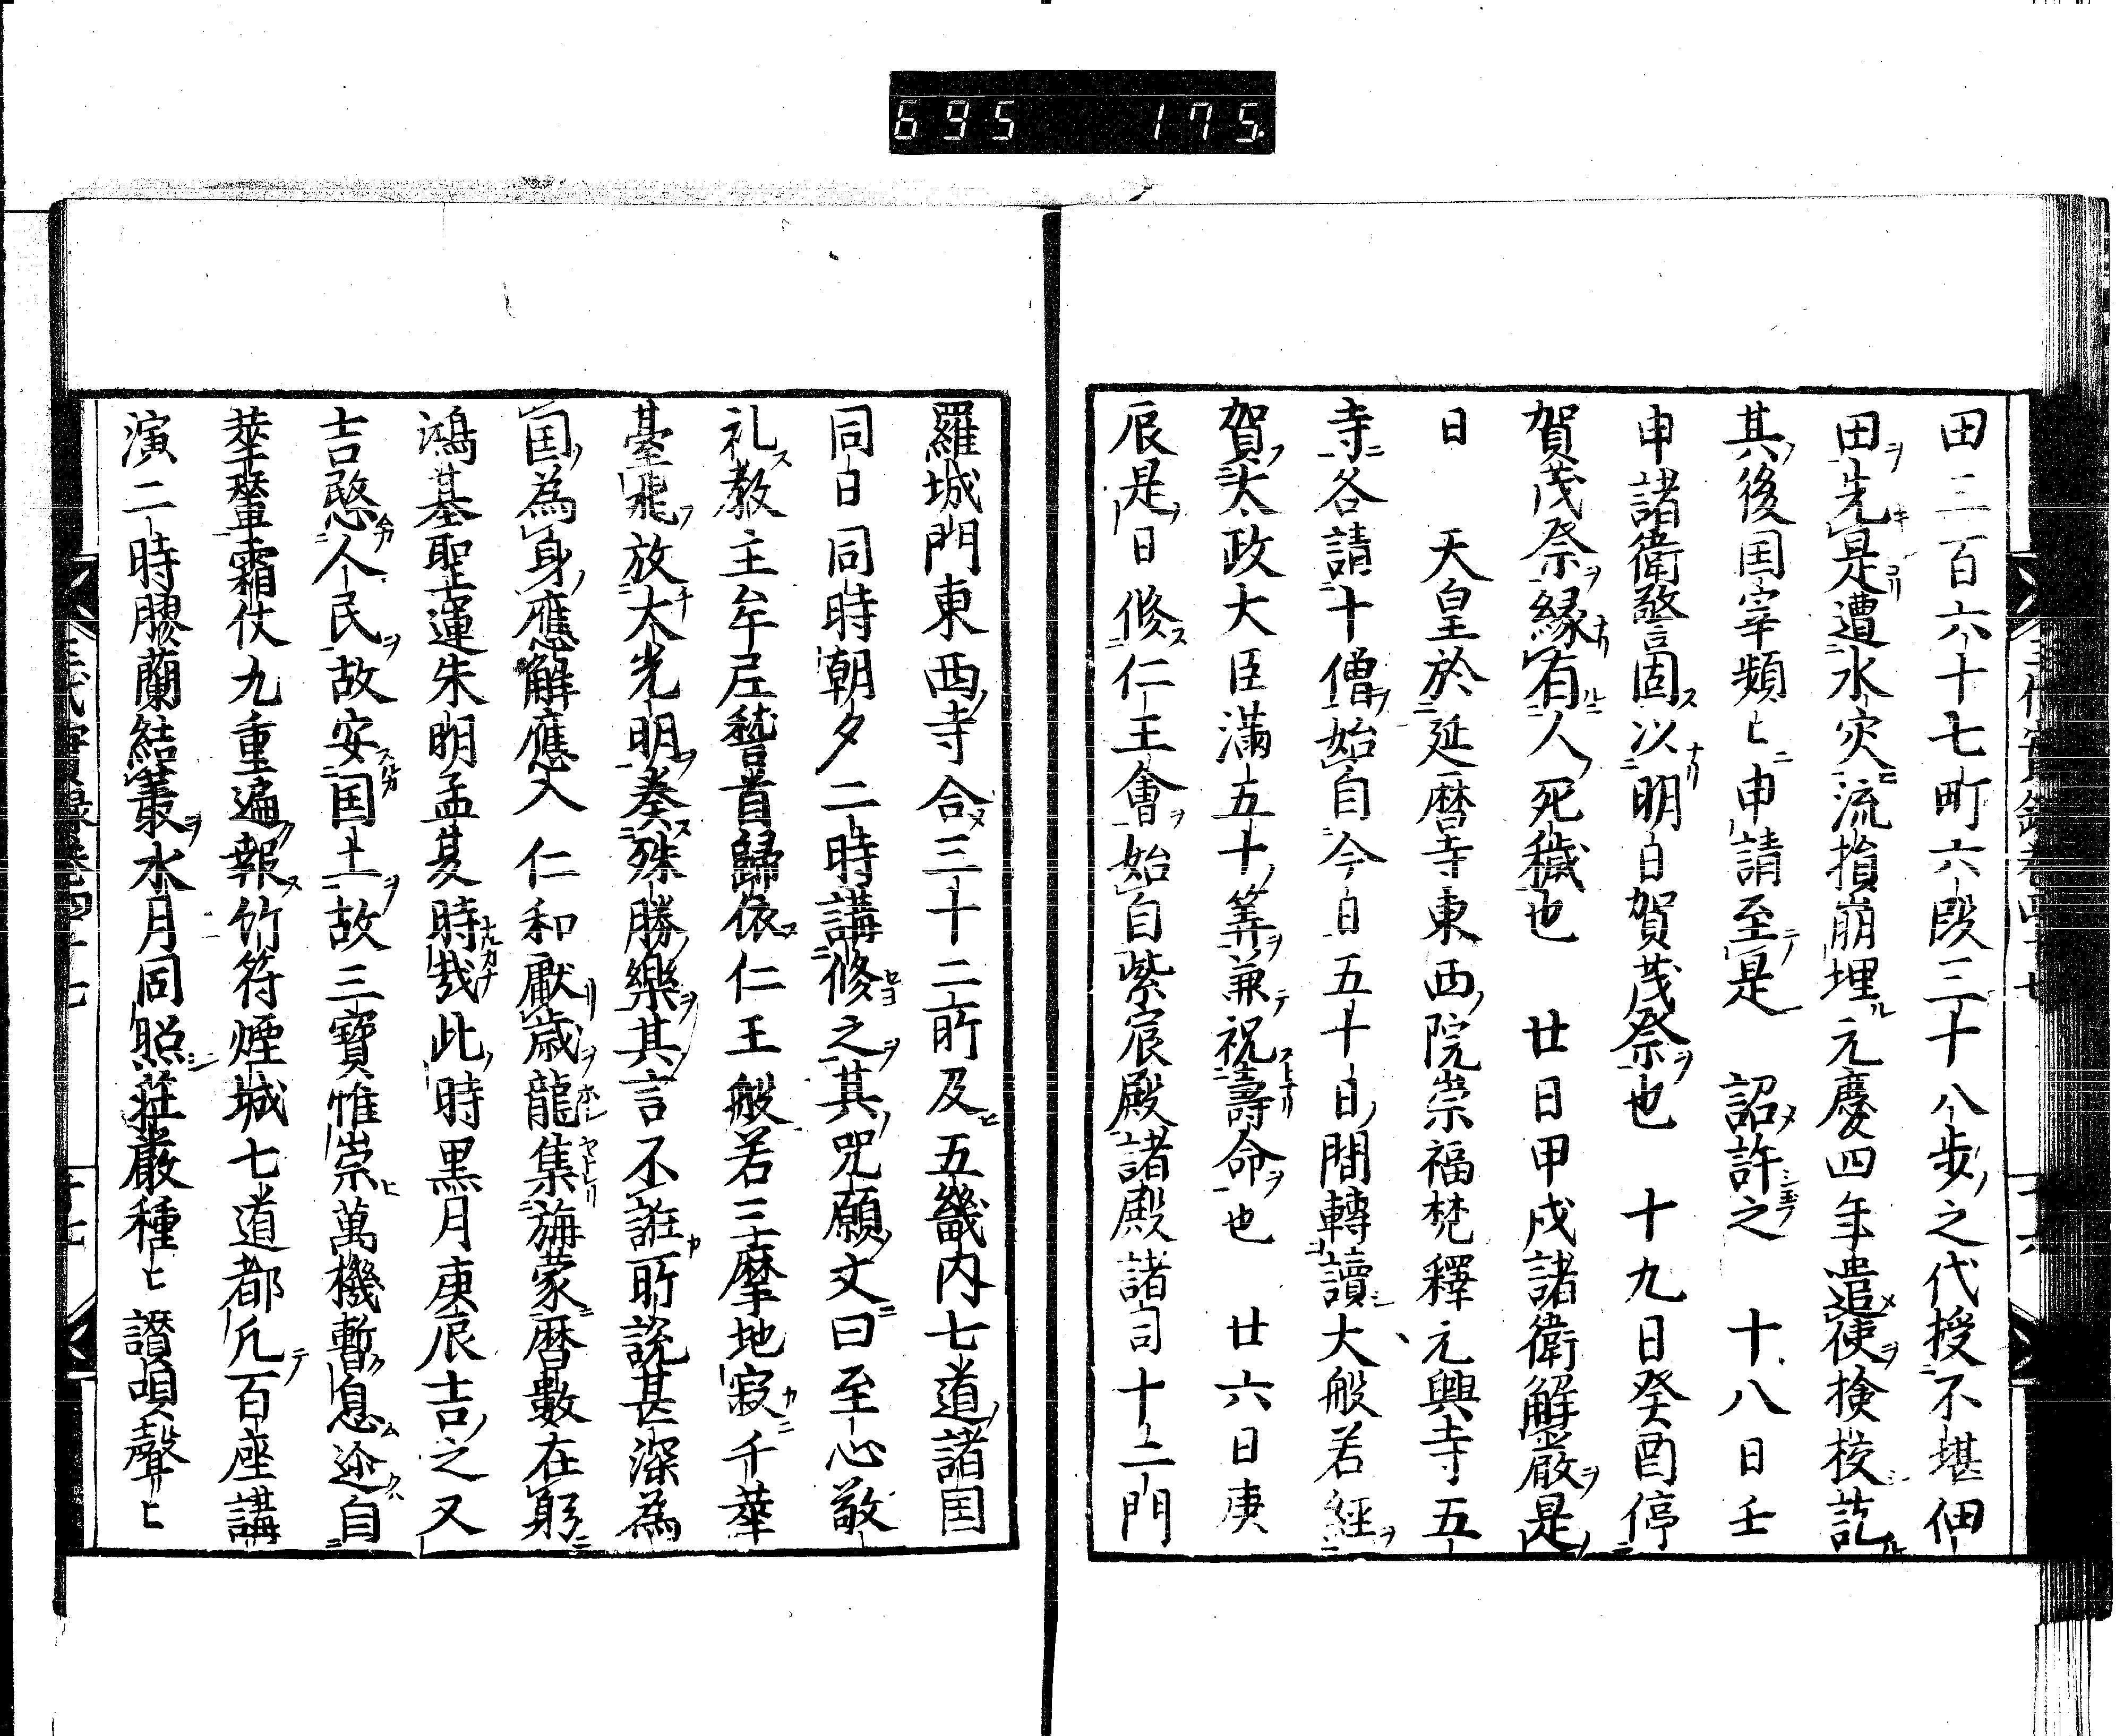 695 175
田三百六十七町六段三十八歩之代授不堪佃
田先是遭水灾流損崩埋元慶四年遣使検校訖
其後国宰頻〻申請至是 詔許之 十八日壬
申諸衛警固以明日賀茂祭也 十九日癸酉停
賀茂祭縁有人死穢也 廿日甲戌諸衛解嚴是
日 天皇於延暦寺東西院崇福梵釋元興寺五
寺各請十僧始自今日五十日間轉讀大般若経
賀太政大臣滿五十筭兼祝壽命也 廿六日庚
辰是日修仁王會始自紫宸殿諸殿諸司十二門
羅城門東西寺合三十二所及五畿内七道諸国
同日同時朝夕二時講修之其咒願文曰至心敬
礼教主牟尼稽首歸依仁王般若三摩地寂千葉
臺飛放大光明奏殊勝樂其言不誑所説甚深為
国為身應解應入仁和獻歳龍集旃蒙暦數在躬
鴻基聖運朱明孟夏時哉此時黒月庚辰吉之又
吉愍人民故安国土故三寶惟崇萬機暫息迩自
葉輦霜仗九重遍報竹符煙城七道都凢一百座講
演二時膠蘭結叢水月同照莊嚴種〻讃唄聲〻